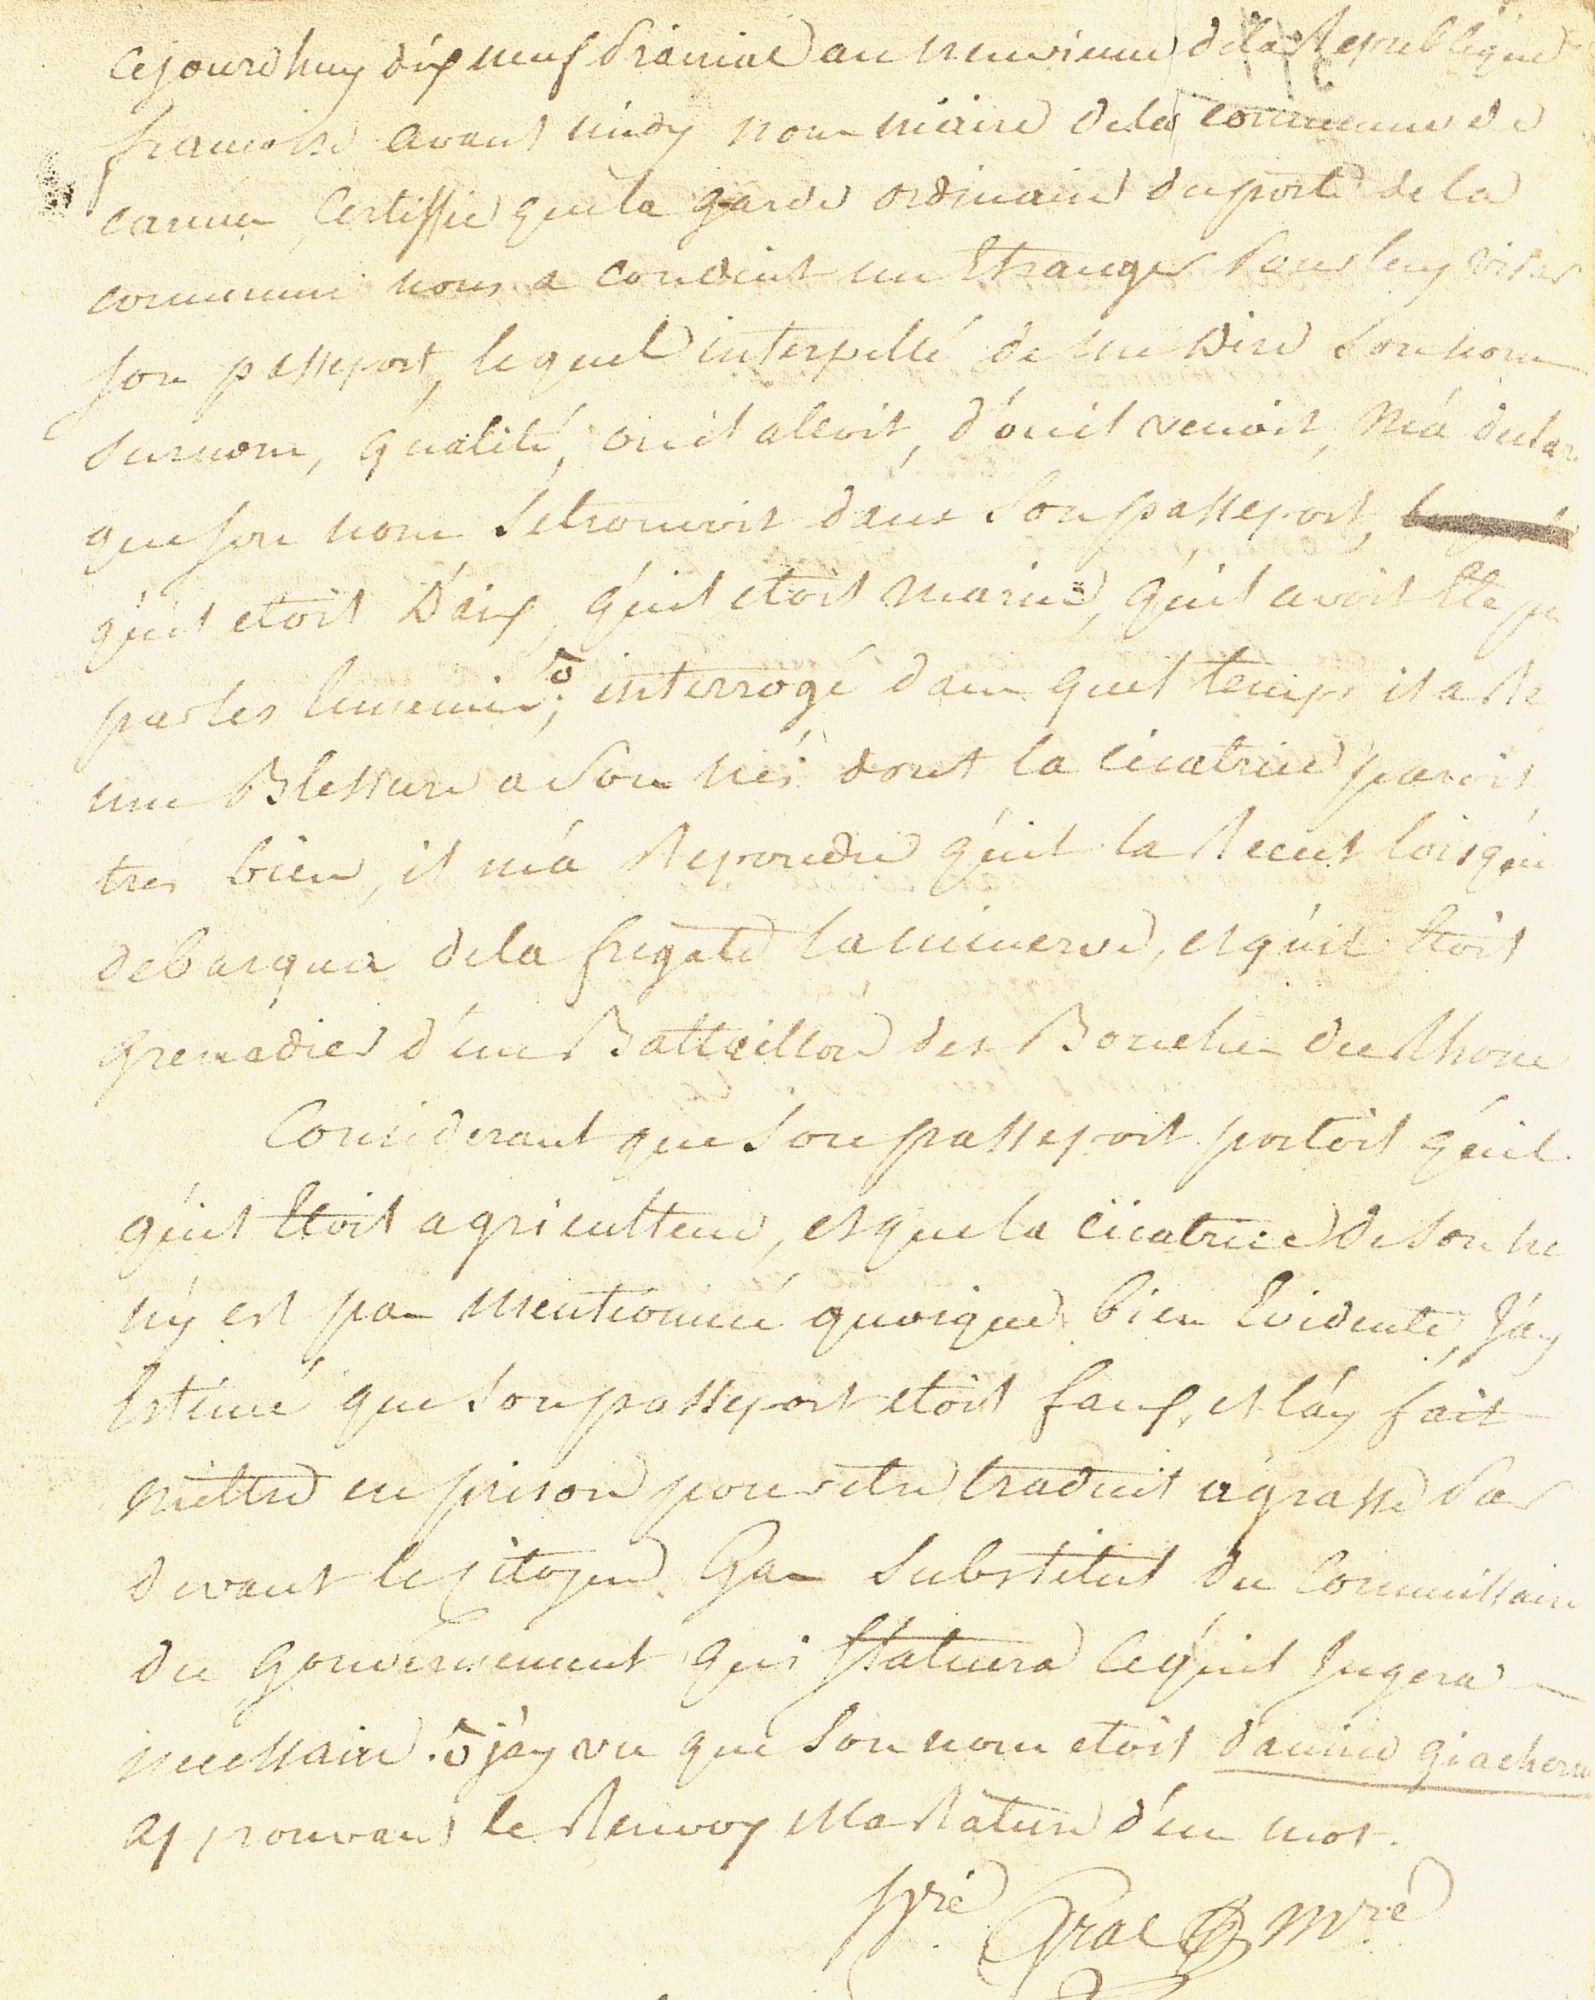 Cejourdhuy dix neuf Prairial an neuvieme dela Republique
francoise avant midy nous maire dela commune de
cannes Certiffie que la garde ordinaire du porte de la
commune nous a conduit un Etranger Pour luy viser
son passeport, lequel interpellé de me Dire Son nom
Surnom, qualité, ou il alloit, d'ou il venoit, m'a declar
que son nom Sétrouvoit dans Son passeport,
qu'il etoit D'aix, qu'il etoit marin, qu'il avoit Ete p
par les Ennemis; interrogé dans quel temps il a Re
une Blessure a Son nés dont la cicatrice paroit
trés bien, il m'a Repondu qu'il la Recut lorsqu'
debarqua dela fregate La minerve, et qu'il Etoit
grenadier d'un Battaillon des Bouches du Rhone
Considerant que Son passeport portoit qu'il
qu'il Etoit agriculteur, et que la cicatrice de Son ne
n'y est pas mentionnée quoique bien Evidente, J'ay
Estimé que Son passeport etoit faux, et l'ay fait
mettre en prison pour etre traduit a grasse Par
devant le Citoyen Gas Substitut du Commissaire
du gouvernement qui Statuera cequ'il Jugera
necessaire. j'ay vu que Son nom etoit
approuvant le Renvoy et la Rature d'un mot.
Gras Mre